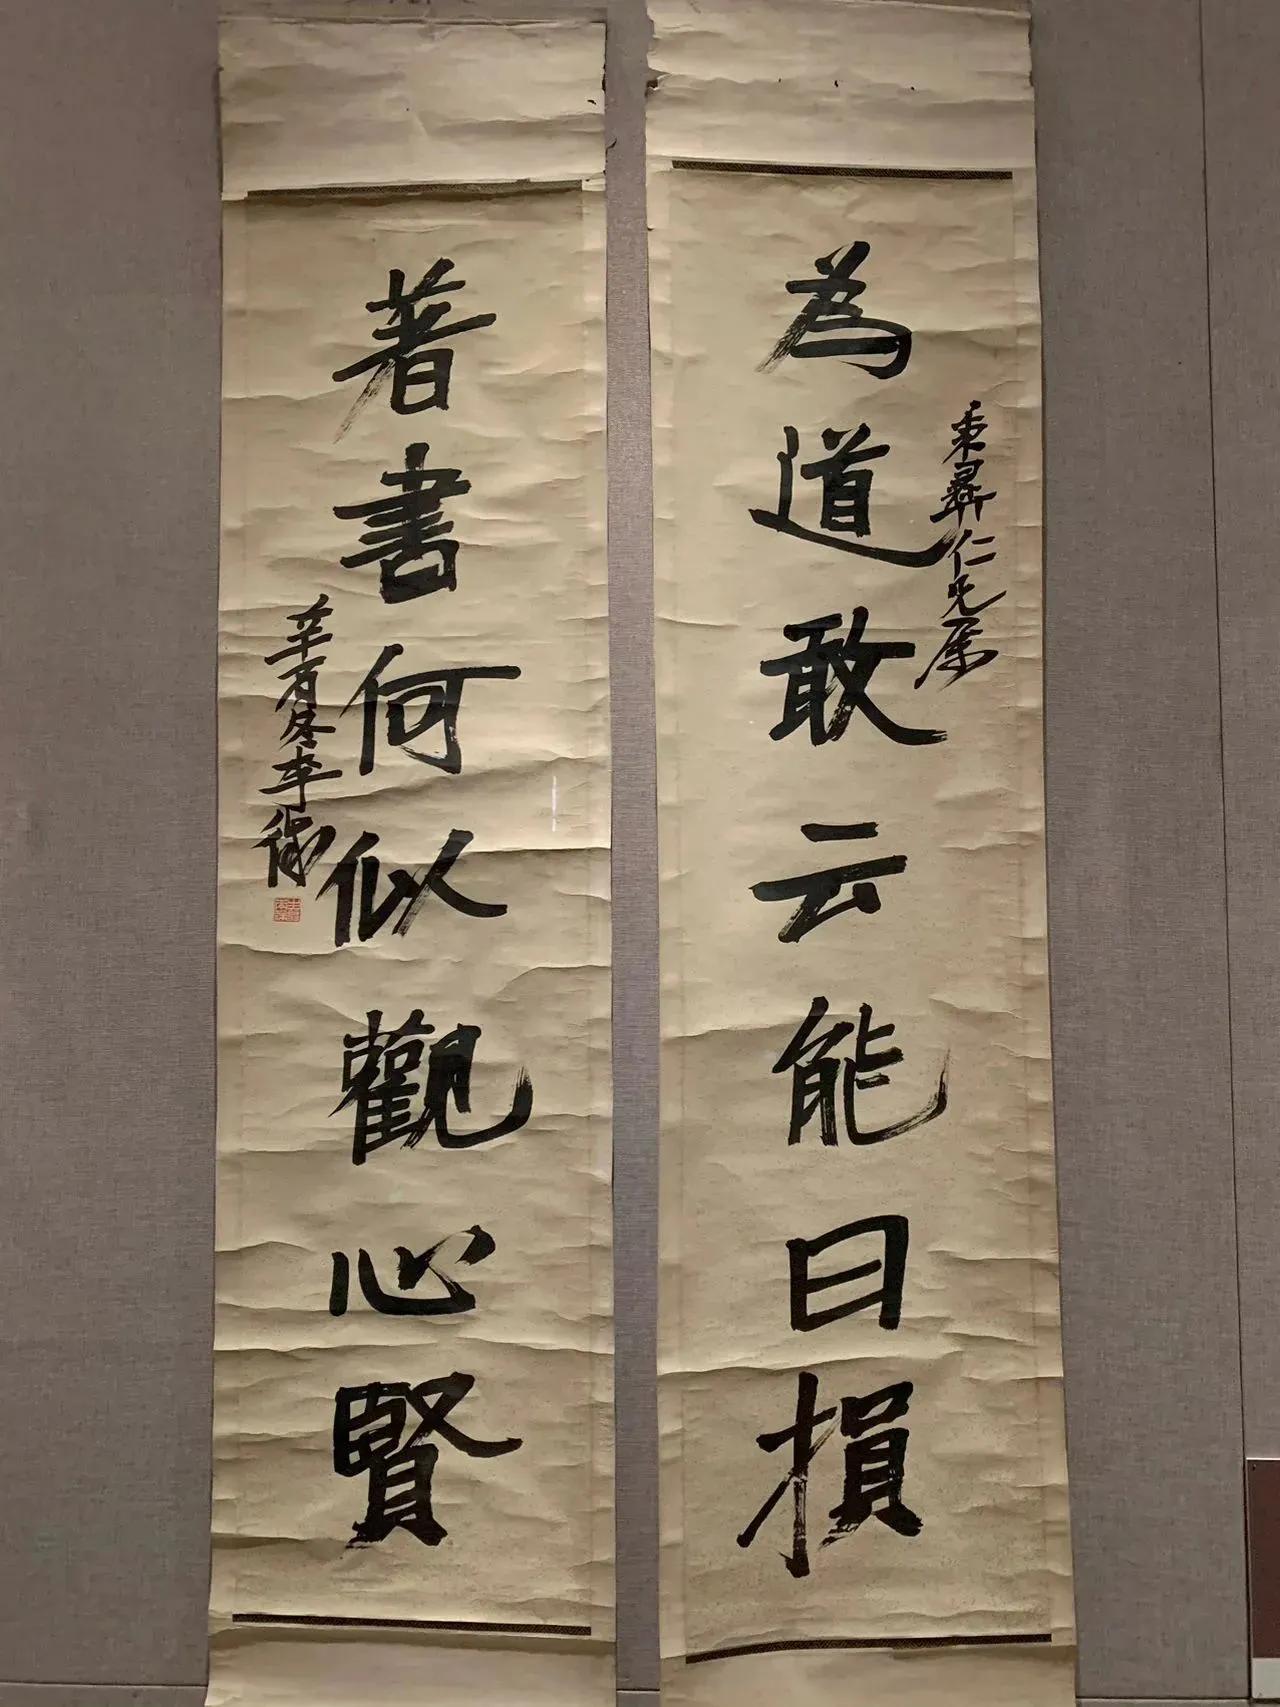 秉彝仁兄属
為道敢云能日損
著書何似觀心賢
辛酉冬李